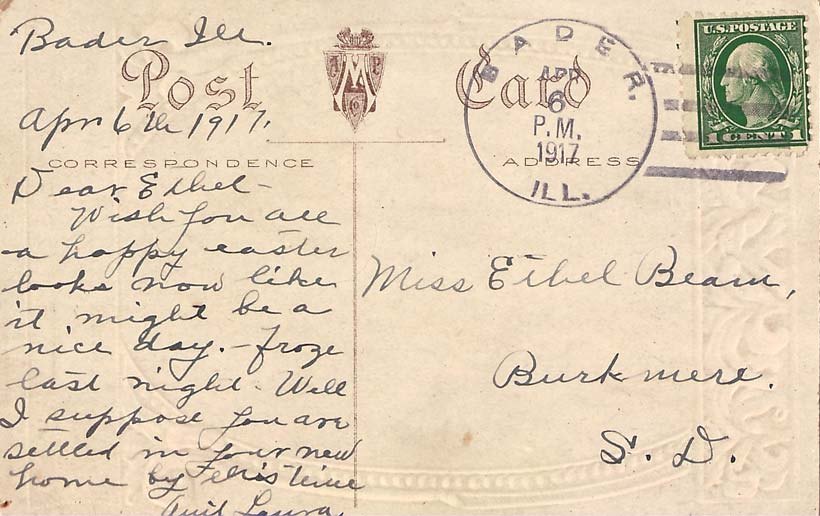 Bader Ill.
Post Card
Apr 6th 1917.
CORRESPONDENCE
Dear Ethel -
Wish you all
a happy easter
looks now like
it might be a
nice day. - froze
last night - Well
I suppose you are
settled in your new
home by this time
Aunt Laura
BADER.
APR
6
P.M.
1917
ILL.
U.S. POSTAGE
1 CENT 1
ADDRESS
Miss Ethel Beam,
Burkmere.
S. D.